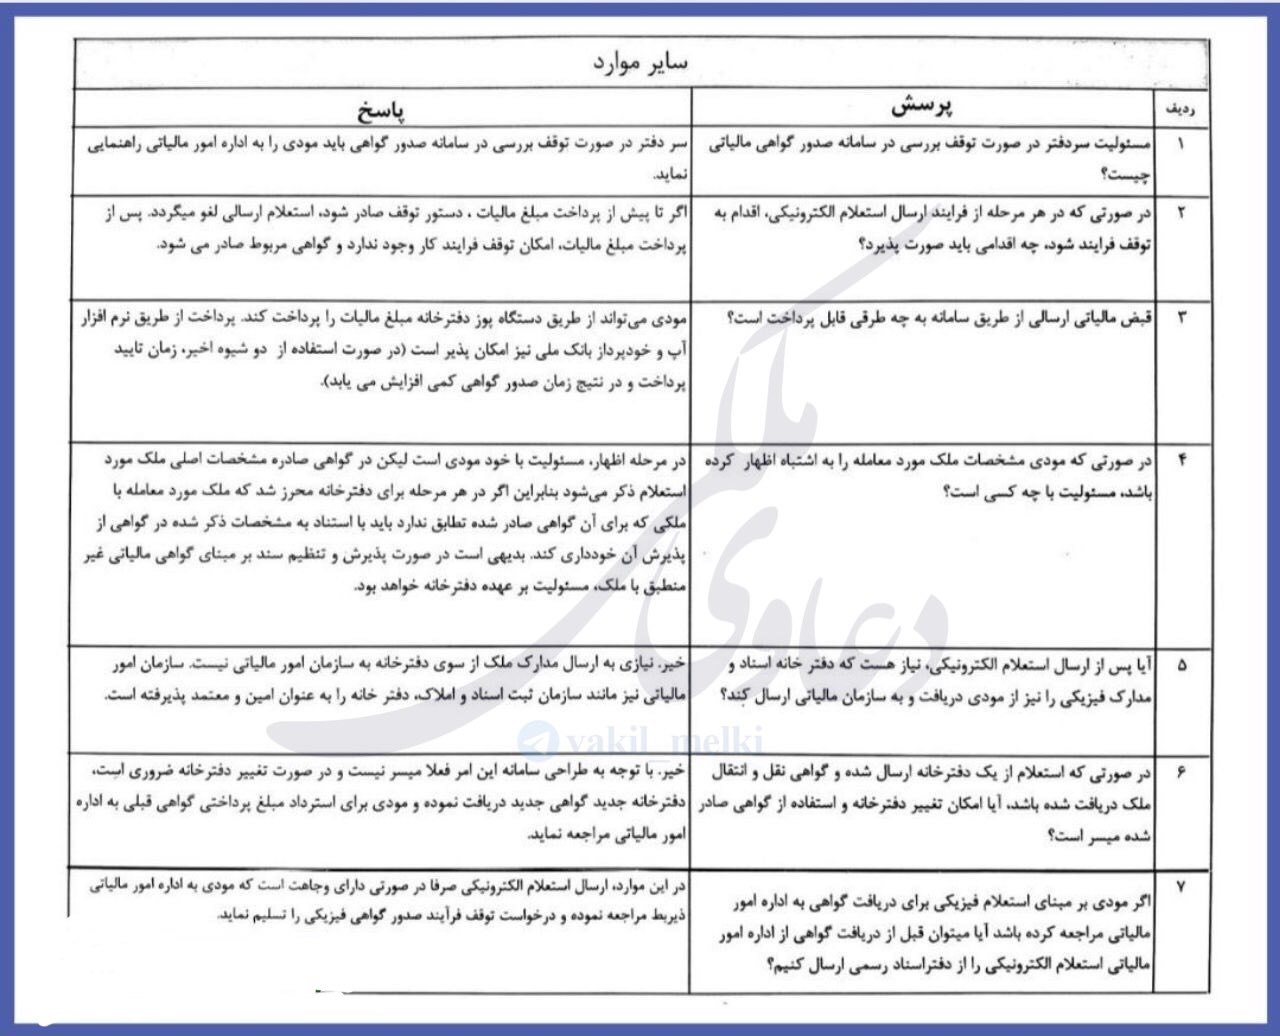 سایر موارد
ردیف
پرسش
پاسخ
۱
مسئولیت سردفتر در صورت توقف بررسی در سامانه صدور گواهی مالیاتی
چیست؟
سر دفتر در صورت توقف بررسی در سامانه صدور گواهی باید مودی را به اداره امور مالیاتی راهنمایی
نماید.
۲
در صورتی که در هر مرحله از فرایند ارسال استعلام الکترونیکی، اقدام به
توقف فرایند شود، چه اقدامی باید صورت پذیرد؟
اگر تا پیش از پرداخت مبلغ مالیات ، دستور توقف صادر شود، استعلام ارسالی لغو میگردد. پس از
پرداخت مبلغ مالیات، امکان توقف فرایند کار وجود ندارد و گواهی مربوط صادر می شود.
۳
قبض مالیاتی ارسالی از طریق سامانه به چه طرقی قابل پرداخت است؟
مودی می‌تواند از طریق دستگاه پوز دفترخانه مبلغ مالیات را پرداخت کند. پرداخت از طریق نرم افزار
آپ و خودپرداز بانک ملی نیز امکان پذیر است (در صورت استفاده از دو شیوه اخیر، زمان تایید
پرداخت و در نتیج زمان صدور گواهی کمی افزایش می یابد).
۴
در صورتی که مودی مشخصات ملک مورد معامله را به اشتباه اظهار کرده
باشد، مسئولیت با چه کسی است؟
در مرحله اظهار، مسئولیت با خود مودی است لیکن در گواهی صادره مشخصات اصلی ملک مورد
استعلام ذکر می‌شود بنابراین اگر در هر مرحله برای دفترخانه محرز شد که ملک مورد معامله با
ملکی که برای آن گواهی صادر شده تطابق ندارد باید با استناد به مشخصات ذکر شده در گواهی از
پذیرش آن خودداری کند. بدیهی است در صورت پذیرش و تنظیم سند بر مبنای گواهی مالیاتی غیر
منطبق با ملک، مسئولیت بر عهده دفترخانه خواهد بود.
۵
آیا پس از ارسال استعلام الکترونیکی، نیاز هست که دفتر خانه اسناد و
مدارک فیزیکی را نیز از مودی دریافت و به سازمان مالیاتی ارسال کند؟
خیر. نیازی به ارسال مدارک ملک از سوی دفترخانه به سازمان امور مالیاتی نیست. سازمان امور
مالیاتی نیز مانند سازمان ثبت اسناد و املاک، دفتر خانه را به عنوان امین و معتمد پذیرفته است.
۶
در صورتی که استعلام از یک دفترخانه ارسال شده و گواهی نقل و انتقال
ملک دریافت شده باشد، آیا امکان تغییر دفترخانه و استفاده از گواهی صادر
شده میسر است؟
خیر. با توجه به طراحی سامانه این امر فعلا میسر نیست و در صورت تغییر دفترخانه ضروری است،
دفترخانه جدید گواهی جدید دریافت نموده و مودی برای استرداد مبلغ پرداختی گواهی قبلی به اداره
امور مالیاتی مراجعه نماید.
۷
اگر مودی بر مبنای استعلام فیزیکی برای دریافت گواهی به اداره امور
مالیاتی مراجعه کرده باشد آیا میتوان قبل از دریافت گواهی از اداره امور
مالیاتی استعلام الکترونیکی را از دفتراسناد رسمی ارسال کنیم؟
در این موارد، ارسال استعلام الکترونیکی صرفا در صورتی دارای وجاهت است که مودی به اداره امور مالیاتی
ذیربط مراجعه نموده و درخواست توقف فرآیند صدور گواهی فیزیکی را تسلیم نماید.
دعاوی ملکی
vakil_melki